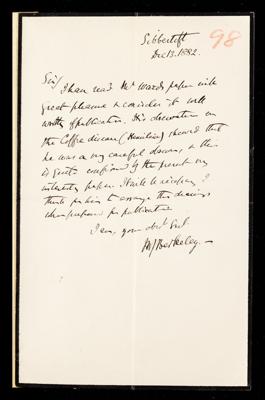 Sibbertoft
98
Dec 13. 1882.
Sir/
I have read Mr Wards paper with
great pleasure & consider it well
worthy of publication. His observations on
the Coffee disease (Hemileia) showed that
he was a very careful observer, & this
is quite confirmed by the present very
interesting paper. It will be necessary I
think for him to arrange the drawings
when prepared for publication
I am, your obt Svt.
M J Berkeley. —